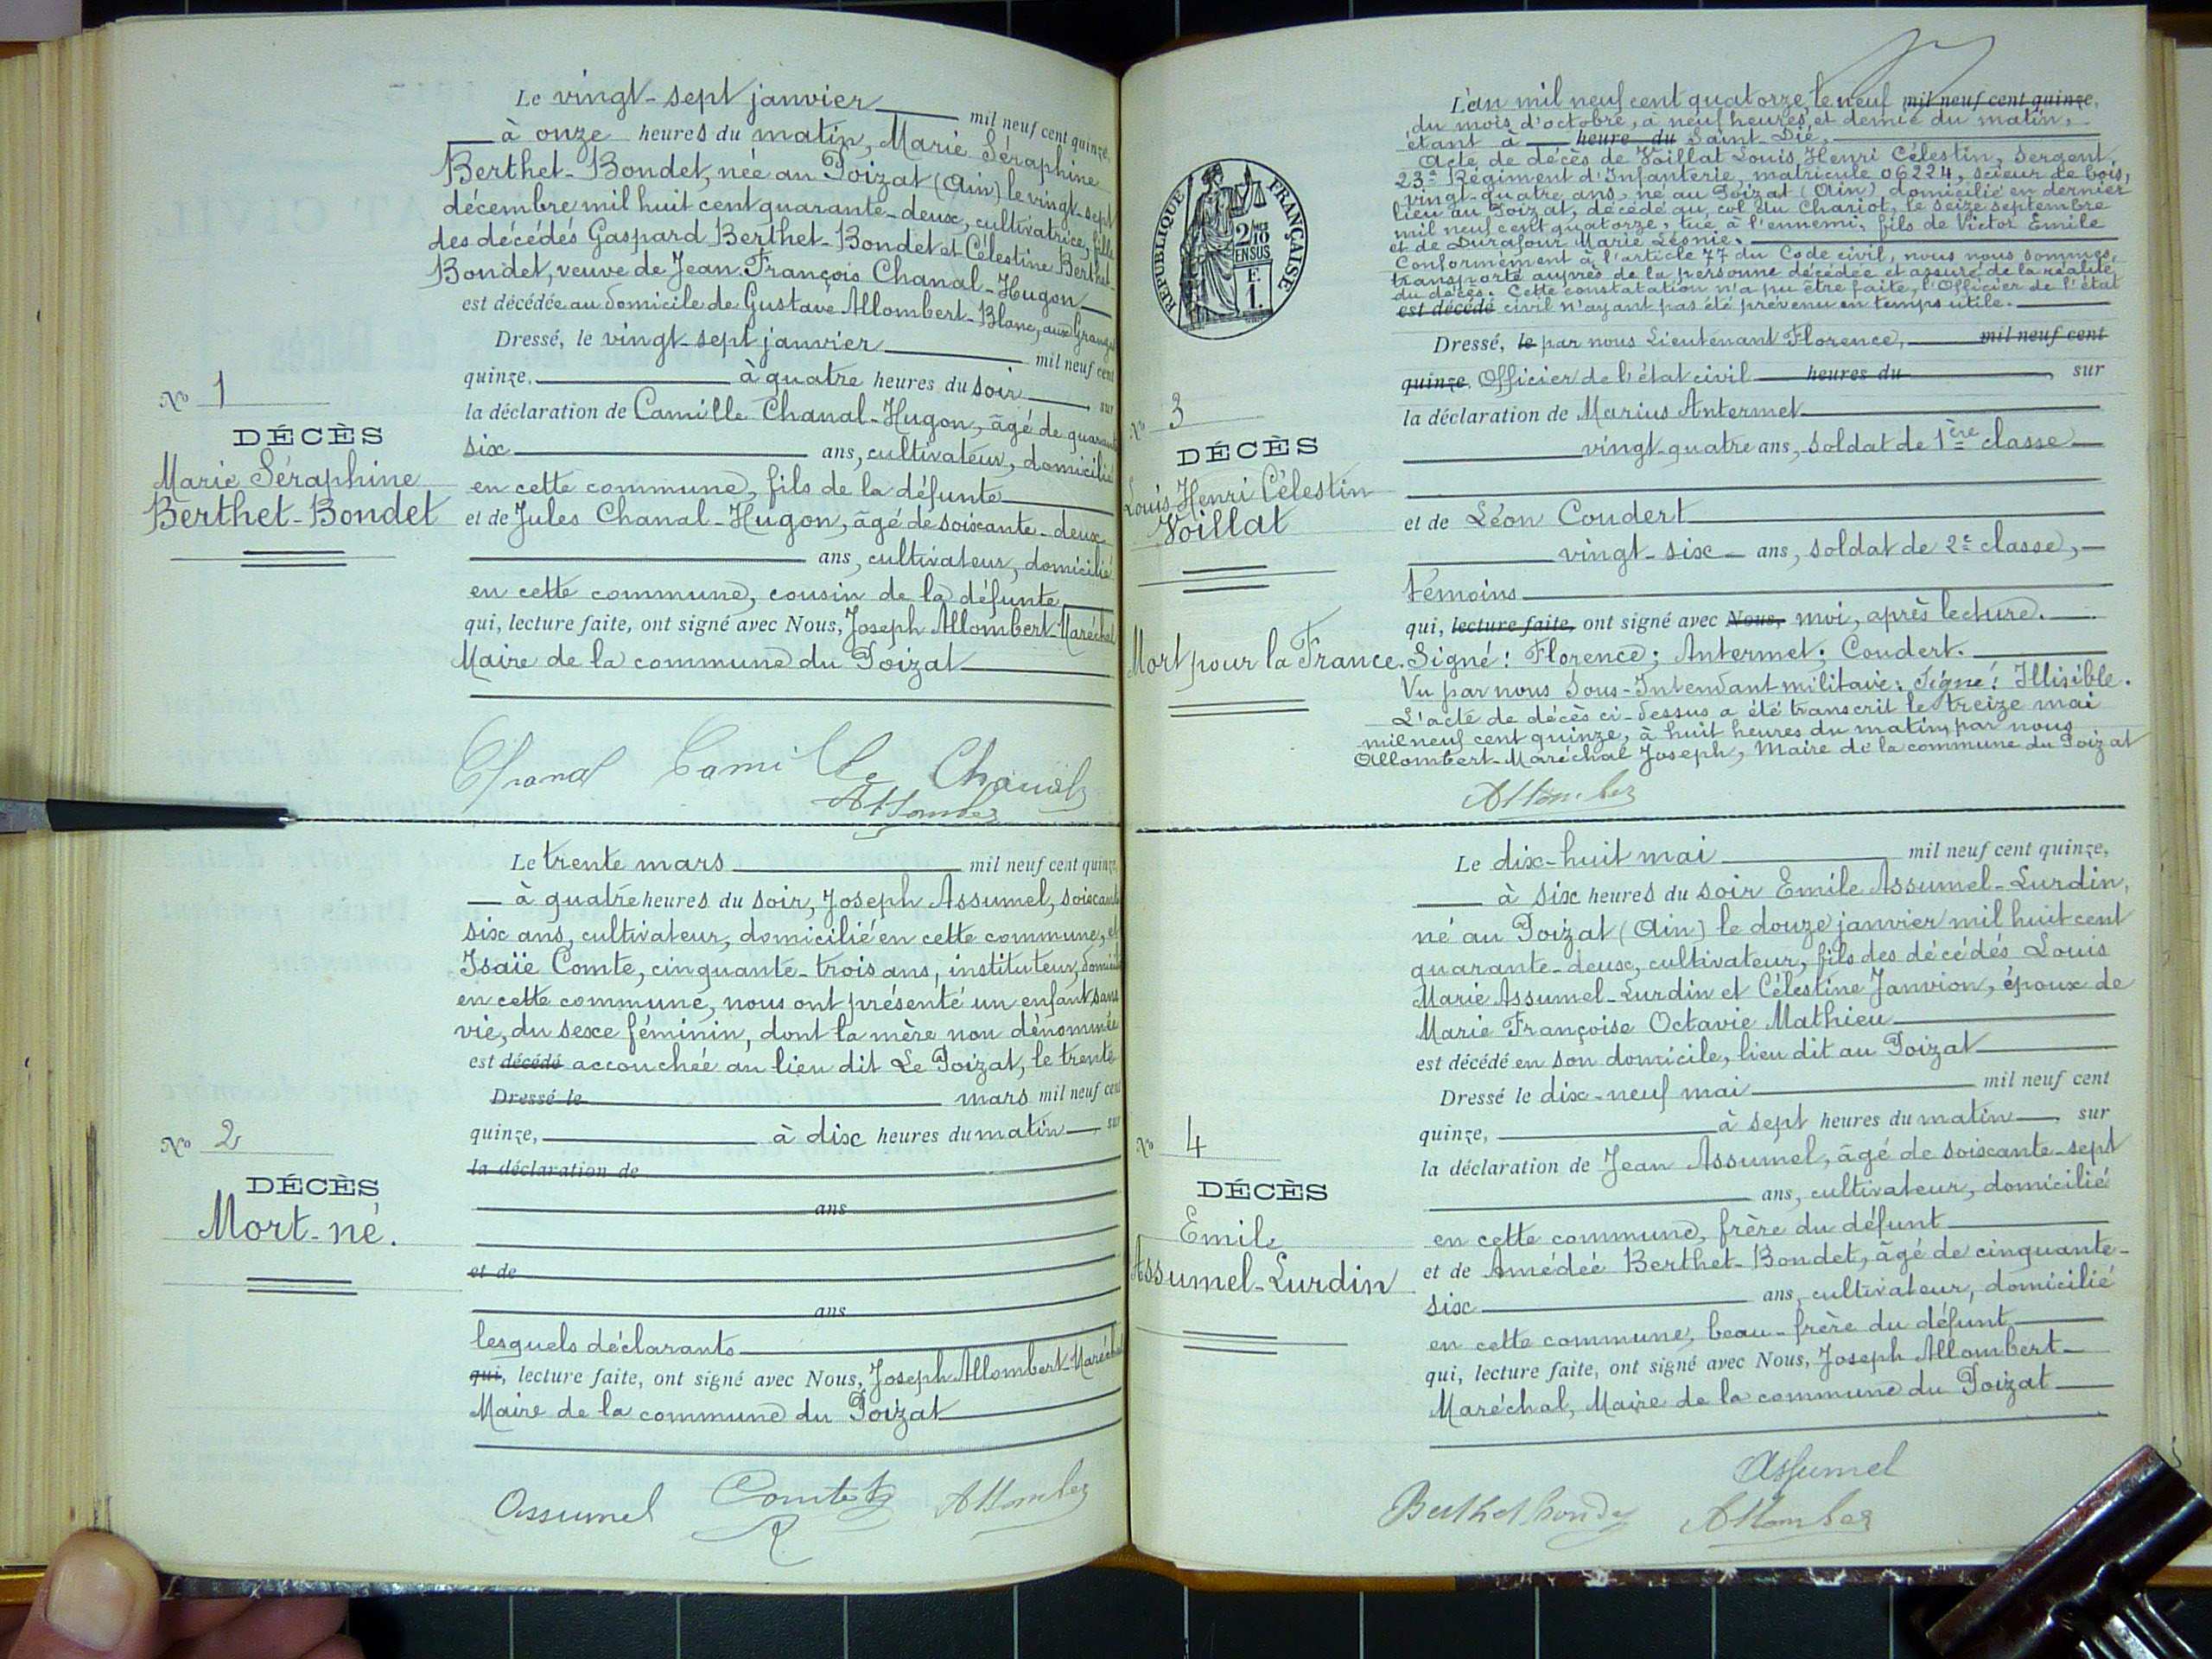 Le vingt-sept janvier mil neuf cent quinze,
à onze heures du matin, Marie Séraphine
Berthet-Bondet, née au Poizat (Ain) le vingt-sept
décembre mil huit cent quarante-deux, cultivatrice, fille
des décédés Gaspard Berthet-Bondet et Célestine Berthet-
Bondet, veuve de Jean François Chanal-Hugon
est décédée au domicile de Gustave Allombert-Blanc, aux Granges
Dressé, le vingt-sept janvier mil neuf cent
quinze, à quatre heures du soir, sur
la déclaration de Camille Chanal-Hugon, âgé de quarante
six ans, cultivateur, domicilié
en cette commune, fils de la défunte
et de Jules Chanal-Hugon, âgé de soixante-deux
ans, cultivateur, domicilié
en cette commune, cousin de la défunte
qui, lecture faite, ont signé avec Nous, Joseph Allombert-Maréchal
Maire de la commune du Poizat
Chanal Camille Chanal
Allombert
N° 1
DÉCÈS
Marie Séraphine
Berthet-Bondet
Le trente mars mil neuf cent quinze,
à quatre heures du soir, Joseph Assumel, soixante
six ans, cultivateur, domicilié en cette commune, et
Isaïe Comte, cinquante-trois ans, instituteur, domicilié
en cette commune, nous ont présenté un enfant sans
vie, du sexe féminin, dont la mère non dénommée
est décédé accouchée au lieu dit Le Poizat, le trente
Dressé le mars mil neuf cent
quinze, à dix heures du matin, sur
la déclaration de
ans
et de
ans
lesquels déclarants
qui, lecture faite, ont signé avec Nous, Joseph Allombert-Maréchal
Maire de la commune du Poizat
Assumel Comte Allombert
N° 2
DÉCÈS
Mort-né.
RÉPUBLIQUE FRANÇAISE
2/10 EN SUS
F.
1.
L'an mil neuf cent quatorze, le neuf mil neuf cent quinze,
du mois d'octobre, à neuf heures, et demie du matin,
étant à heure du Saint-Dié,
Acte de décès de Voillat Louis Henri Célestin, Sergent
23e Régiment d'Infanterie, matricule 06224, scieur de bois,
vingt-quatre ans, né au Poizat (Ain) domicilié en dernier
lieu au Poizat, décédé au col du Chariot, le seize septembre
mil neuf cent quatorze, tué à l'ennemi, fils de Victor Emile
et de Durafour Marie Léonie.
Conformément à l'article 77 du Code civil, nous nous sommes,
transporté auprès de la personne décédée et assuré de la réalité
du décès. Cette constatation n'a pu être faite, l'Officier de l'état
est décédé civil n'ayant pas été prévenu en temps utile.
Dressé, le par nous Lieutenant Florence, mil neuf cent
quinze. Officier de l'état civil heures du, sur
la déclaration de Marius Antermet
vingt-quatre ans, soldat de 1ère classe
et de Léon Coudert
vingt-six ans, soldat de 2e classe,
témoins
qui, lecture faite, ont signé avec Nous, moi, après lecture.
Signé: Florence; Antermet; Coudert.
Vu par nous Sous-Intendant militaire: Signé: Illisible.
L'acte de décès ci-dessus a été transcrit le treize mai
mil neuf cent quinze, à huit heures du matin, par nous
Allombert-Maréchal Joseph, Maire de la commune du Poizat
Allombert
N° 3
DÉCÈS
Louis Henri Célestin
Voillat
Mort pour la France.
Le dix-huit mai mil neuf cent quinze,
à six heures du soir Emile Assumel-Lurdin,
né au Poizat (Ain) le douze janvier mil huit cent
quarante-deux, cultivateur, fils des décédés Louis
Marie Assumel-Lurdin et Célestine Janvion, époux de
Marie Françoise Octavie Mathieu
est décédé en son domicile, lieu dit au Poizat
Dressé le dix-neuf mai mil neuf cent
quinze, à sept heures du matin, sur
la déclaration de Jean Assumel, âgé de soixante-sept
ans, cultivateur, domicilié
en cette commune, frère du défunt
et de Amédée Berthet-Bondet, âgé de cinquante-
six ans, cultivateur, domicilié
en cette commune, beau-frère du défunt
qui, lecture faite, ont signé avec Nous, Joseph Allombert-
Maréchal, Maire de la commune du Poizat
Assumel
Berthet bondet Allombert
N° 4
DÉCÈS
Emile
Assumel-Lurdin